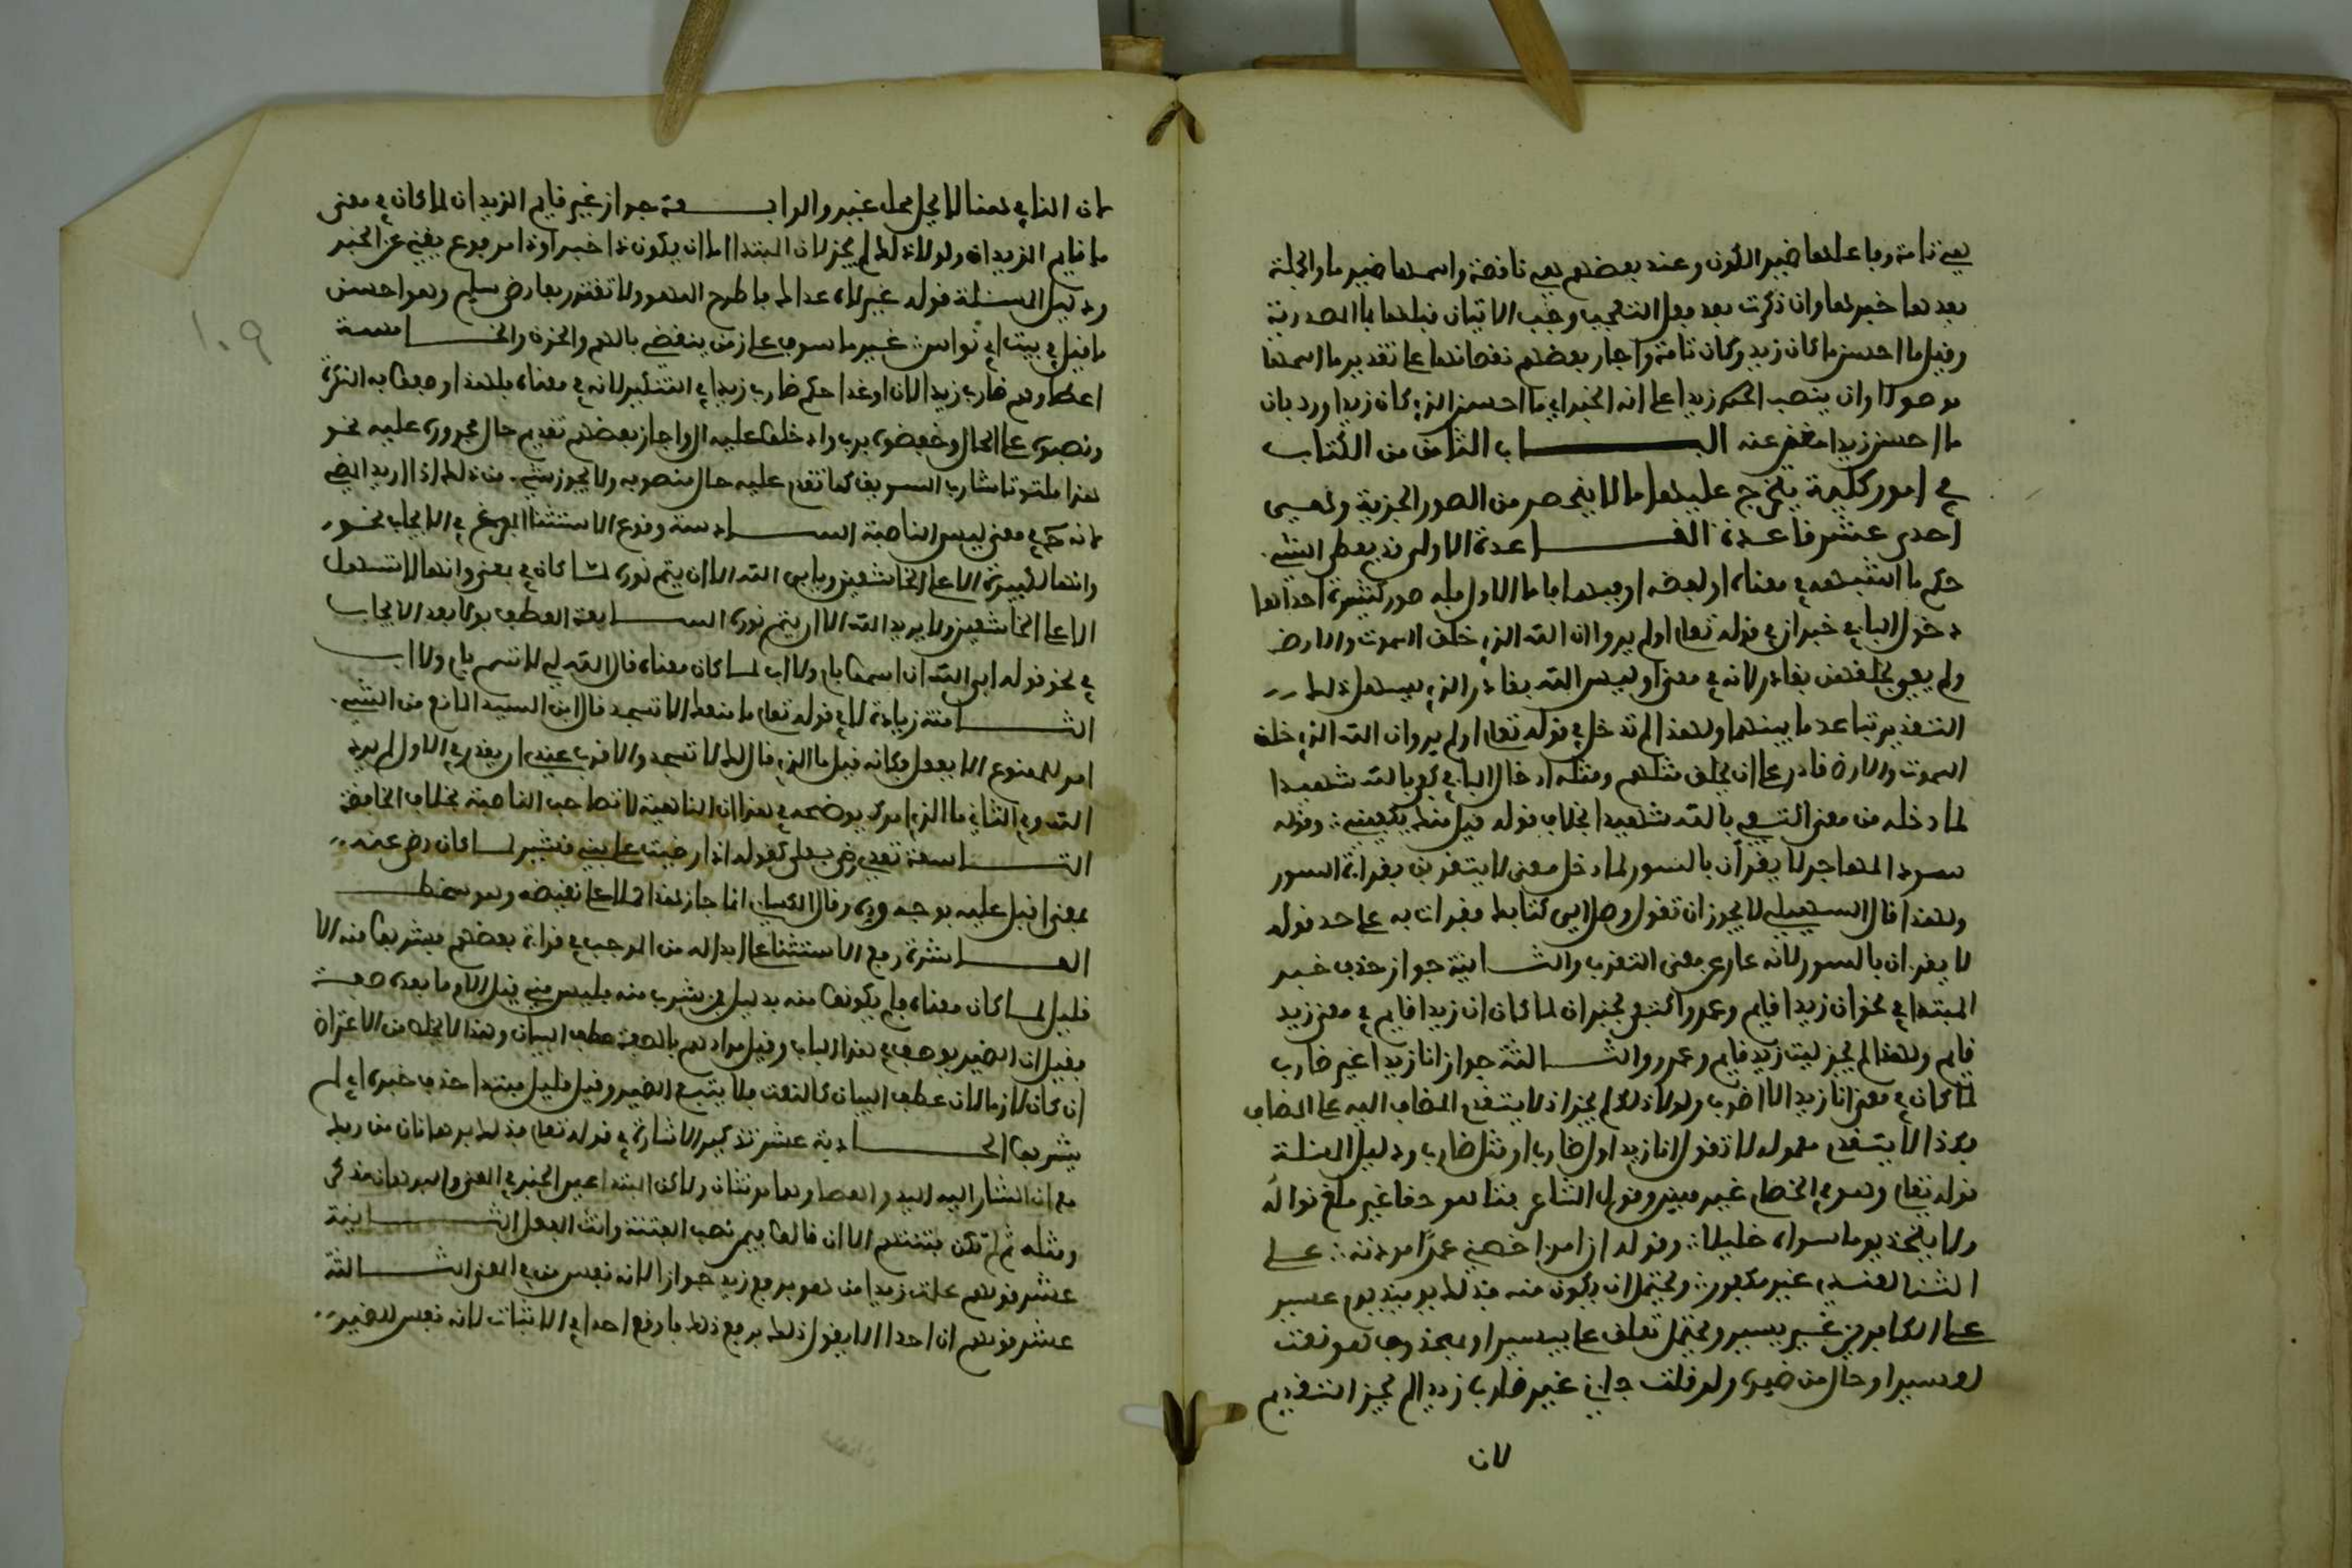 فهي تامة وفاعلها ضمير الكون وعند بعضهم هي ناقصة واسمها ضمير ما والجملة
بعدها خبر لها وان ذكرت بعد فعل التعجب وجب الاتيان قبلها بما المصدرية
وقيل ما احسن ما كان زيد وكان تامة واجاز بعضهم نقصانها على تقدير ما اسما
موصولا وان ينصب الخبر زيدا على انه الخبر اي ما احسن الذي كان زيدا ورد بان
ما احسن زيدا مغن عنه البـــاب الثامن من الكتاب
في امور كلية يتخرج عليها ما لا ينحصر من الصور الجزيية وهي
احدى عشر قاعدة القـــاعدة الاولى قد يعطى الشيء
حكم ما اشبهه في معناه او لفظه او فيهما فاما الاول فله صور كثيرة احداها
دخول الباء في خبر ان في قوله تعلى اولم يروا ان الله الذي خلق السموت والارض
ولم يعي بخلقهن بقادر لانه في معنى اوليس الله بقادر الذي يسهل ذلك
التقدير تباعد ما بينهما ولهذا لم تدخل في قوله تعلى اولم يروا ان الله الذي خلق
السموت والارض قادر على ان يخلق مثلهم ومثله ادخال الباء في كفى بالله شهيدا
لما دخله من معنى اكتف بالله شهيدا بخلاف قوله قليل منك يكفيني وقوله
سود المحاجر لا يقرأن بالسور لما دخل معنى لا يتقربن بقراءة السور
ولهذا قال السهيلي لا يجوز ان تقول وصل الي كتابك فقرات به على حد قوله
لا يقرأن بالسور لانه عار عن معنى التقرب والثـــانية جواز حذف خبر
المبتدا في نحو ان زيدا قايم وعمرو اكتفي بخبر ان لما كان ان زيدا قايم في معنى زيد
قايم ولهذا لم يجز ليت زيد قايم وعمرو والثـــالثة جواز انا زيدا غير ضارب
لما كان في معنى انا زيدا لا اضرب ولولا ذلك لم يجز اذ لا يتقدم المضاف اليه على المضاف
فكذا لا يتقدم معموله لا تقول انا زيدا اول ضارب او مثل ضارب ودليل المسئلة
قوله تعلى وهو في الخصام غير مبين وقول الشاعر فتا هو حقا غير ملغ نواله
ولا يتخذ يوما سواه خليلا وقوله ان امرا خصني عمدا مودته على
التناءي لعندي غير مكفور ويحتمل ان يكون منه فذلك يوميذ يوم عسير
على الكافرين غير يسير ويحتمل تعلق على بعسير او بمحذوف هو نعت
لعسير او حال من ضميره ولو قلت جاءني غير ضارب زيدا لم يجز التقديم
لان
لان النافي هنا لا يحل محل غير والرابـــعة جواز غير قايم الزيدان لما كان في معنى
ما قايم الزيدان ولولا ذلك لم يجز لان المبتدا اما ان يكون ذا خبر او ذا مرفوع يغني عن الخبر
ودليل المسئلة قوله غير لاه عداك فاطرح اللهو ولا تغترر بعارض سلم وهو احسن
ما قيل في بيت ابي نواس غير ماسوف على زمن ينقضي بالهم والحزن والخـــامسة
اعطاوهم ضارب زيد الان او غدا حكم ضارب زيدا في التنكير لانه في معناه فلهذا وصفوا به النكرة
ونصبوه على الحال وخفضوه برب وادخلوا عليه ال واجاز بعضهم تقديم حال مجروره عليه نحو
هذا ملتوتا شارب السويق كما تقدم عليه حال منصوبه ولا يجوز شيء من ذلك اذا اريد المضي
لانه حـ في معنى ليس الناصبة الســـادسة وقوع الاستثنا المفرغ في الايجاب نحو
وانها لكبيرة الا على الخاشعين ويابى الله الا ان يتم نوره لما كان في معنى وانها لا تسهل
الا على الخاشعين ولا يريد الله الا ان يتم نوره الســـابعة العطف بولا بعد الايجاب
في نحو قوله ابى الله ان اسمو بام ولا اب لما كان معناه قال الله لي لا تسم بام ولا اب
الثـــامنة زيادة لا في قوله تعلى ما منعك الا تسجد قال ابن السيد المانع من الشيء
امر للممنوع الا يفعل فكانه قيل ما الذي قال لك لا تسجد والاقرب عندي ان يقدر في الاول لم يرد
الله وفي الثاني ما الذي امرك يوضحه في هذا ان الناهية لا تصاحب الناصبة بخلاف النافية
التـــاسعة تعدي رضي بعلى كقوله اذا رضيت علي بنو قشير لما كان رضي عنه
بمعنى اقبل عليه بوجه وده وقال الكسائي انما جاز هذا حملا على نقيضه وهو سخط
العـــاشرة رفع الاستثنا على ابداله من الموجب في قراءة بعضهم فشربوا منه الا
قليل لما كان معناه فلم يكونوا منه بدليل فمن شرب منه فليس مني وقيل الا وما بعده صفة
فقيل ان الضمير يوصف في هذا الباب وقيل مرادهم بالصفة عطف البيان وهذا لا يخلص من الاعتراض
ان كان لازما لان عطف البيان كالنعت فلا يتبع الضمير وقيل قليل مبتدا حذف خبره اي لم
يشربوا الحـــادية عشر تذكير الاشارة في قوله تعلى فذانك برهانان من ربك
مع ان المشار اليه اليد والعصا وهما مونثتان ولاكن المبتدا عين الخبر في المعنى والبرهان مذكر
ومثله ثم لم تكن فتنتهم الا ان قالوا فيمن نصب الفتنة وانث الفعل الثـــانية
عشر قولهم علمت زيد من هو برفع زيد جوازا لانه نفس من في المعنى الثـــالثة
عشر قولهم ان احدا لا يقول ذلك برفع ذلك فاوقع احدا في الاثبات لانه نفس الضمير
١٠٩